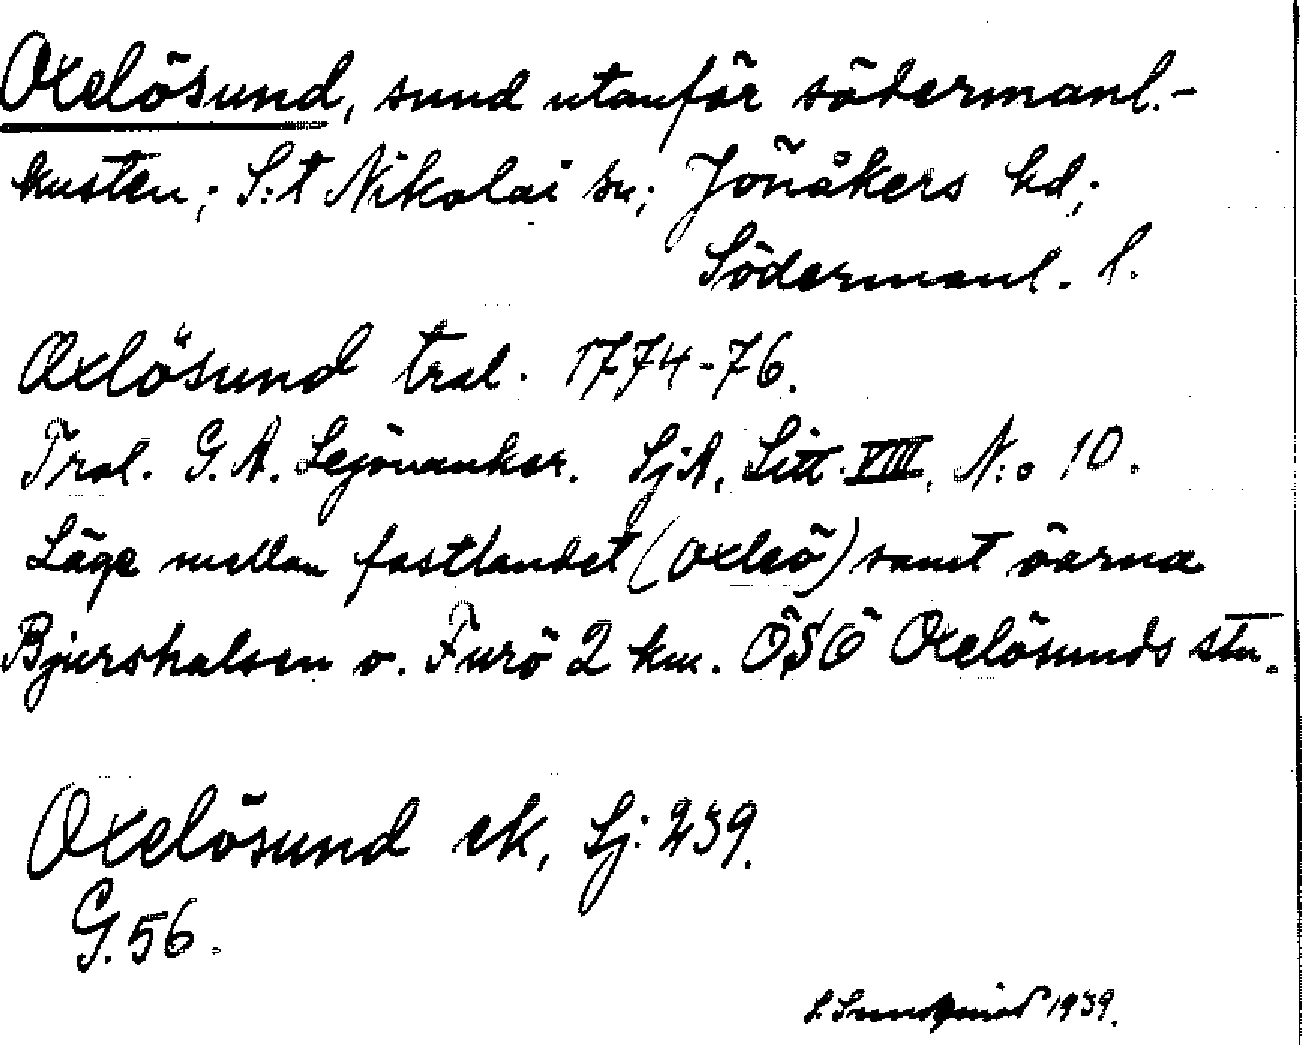 Oxelösund, sund utanför södermanl.-
kusten; S:t Nikolai sn; Jönåkers hd;
Södermanl. l.
Oxlösund tral. 1774-76.
Tral. G. A. Lejonanker. SjA, Litt. VIII, N:o 10.
Läge mellan fastlandet (Oxleö) samt öarna
Bjurshalsen o. Furö 2 km. ÖSÖ Oxelösunds stn.
Oxelösund ek, Sj: 239.
G. 56.
1939.